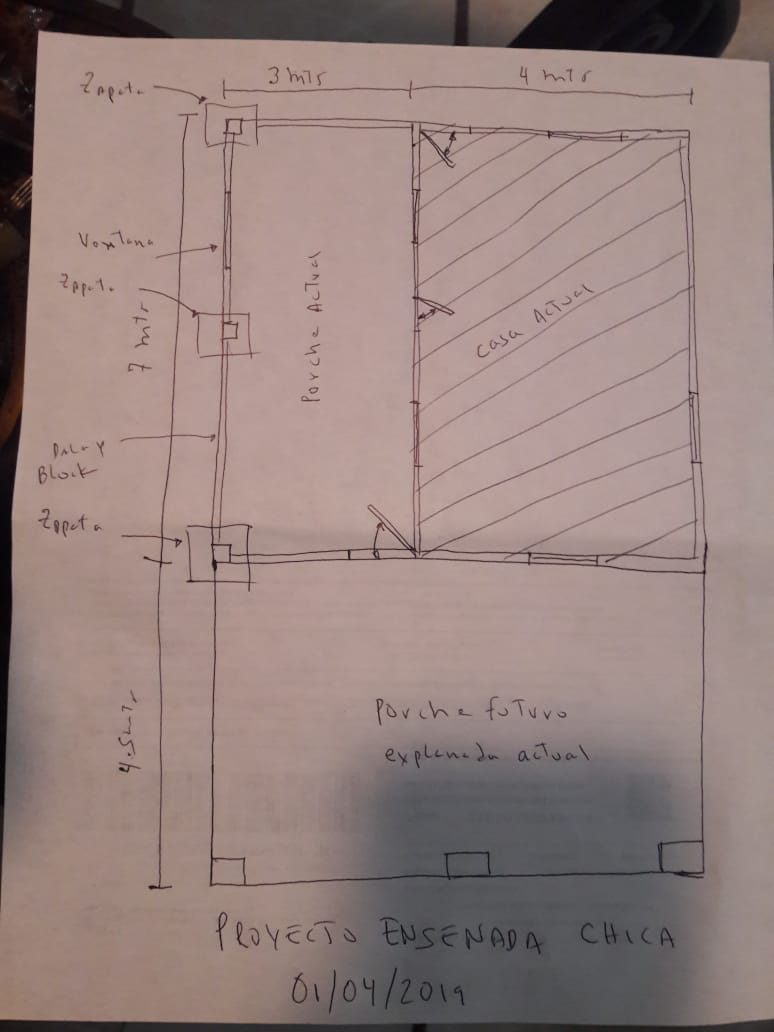 3 mtr
4 mtr
Zapata
Ventana
Zapata
7 mtr
Porche Actual
Casa Actual
Dala y
Block
Zapata
4.5mtr
Porche futuro
explanada actual
PROYECTO ENSENADA CHICA
01/04/2019